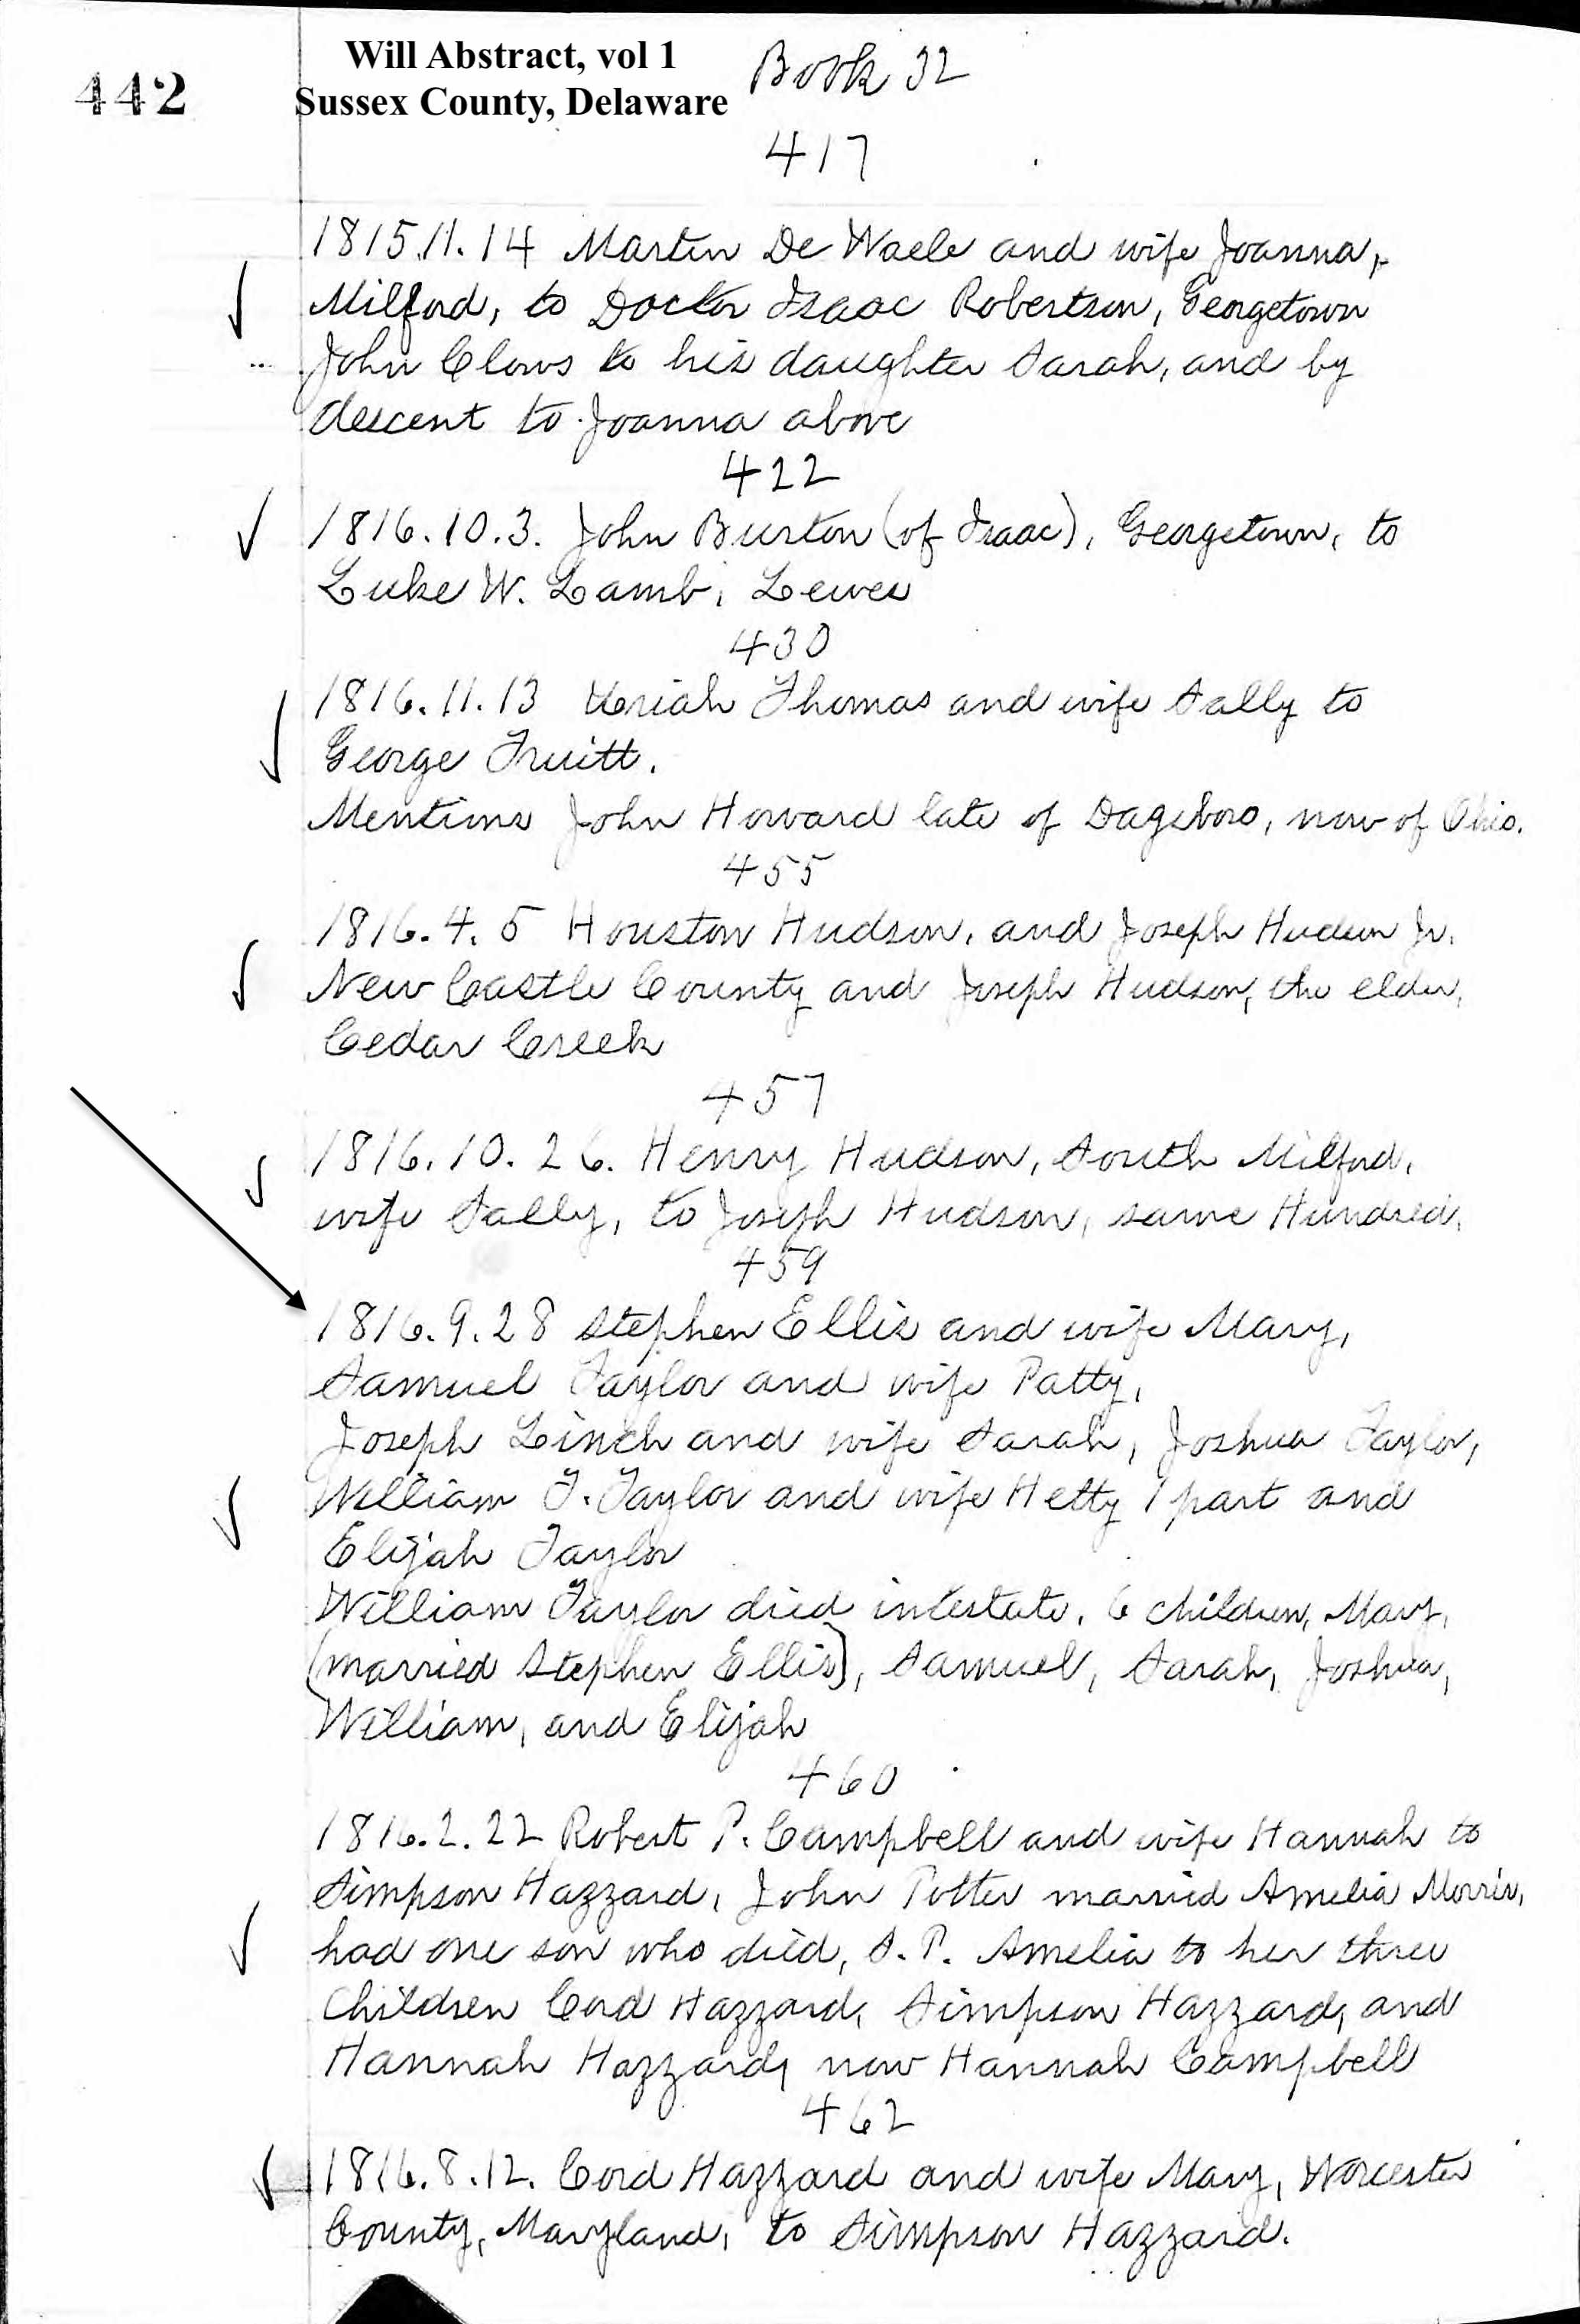 442
Will Abstract, vol 1
Sussex County, Delaware
Book 32
417
1815.11.14 Martin De Waele and wife Joanna,
Milford, to Doctor Isaac Robertson, Georgetown
John Clows to his daughter Sarah, and by
descent to Joanna above
422
1816.10.3. John Burton (of Isaac), Georgetown, to
Luke W. Lamb, Lewes
430
1816.11.13 Uriah Thomas and wife Sally to
George Truitt.
Mentions John Howard late of Dagsboro, now of Ohio.
455
1816.4.5 Houston Hudson, and Joseph Hudson Jr.
New Castle County and Joseph Hudson, the elder,
Cedar Creek
457
1816.10.26. Henry Hudson, South Milford,
wife Sally, to Joseph Hudson, same Hundred.
459
1816.9.28 Stephen Ellis and wife Mary,
Samuel Taylor and wife Patty,
Joseph Linch and wife Sarah, Joshua Taylor,
William T. Taylor and wife Hetty 1 part and
Elijah Taylor
William Taylor died intestate, 6 children, Mary,
(married Stephen Ellis), Samuel, Sarah, Joshua,
William, and Elijah
460
1816.2.22 Robert P. Campbell and wife Hannah to
Simpson Hazzard, John Potter married Amelia Morris,
had one son who died, S.P. Amelia to her three
children Cord Hazzard, Simpson Hazzard, and
Hannah Hazzard, now Hannah Campbell
462
1816.8.12. Cord Hazzard and wife Mary, Worcester
County, Maryland, to Simpson Hazzard.